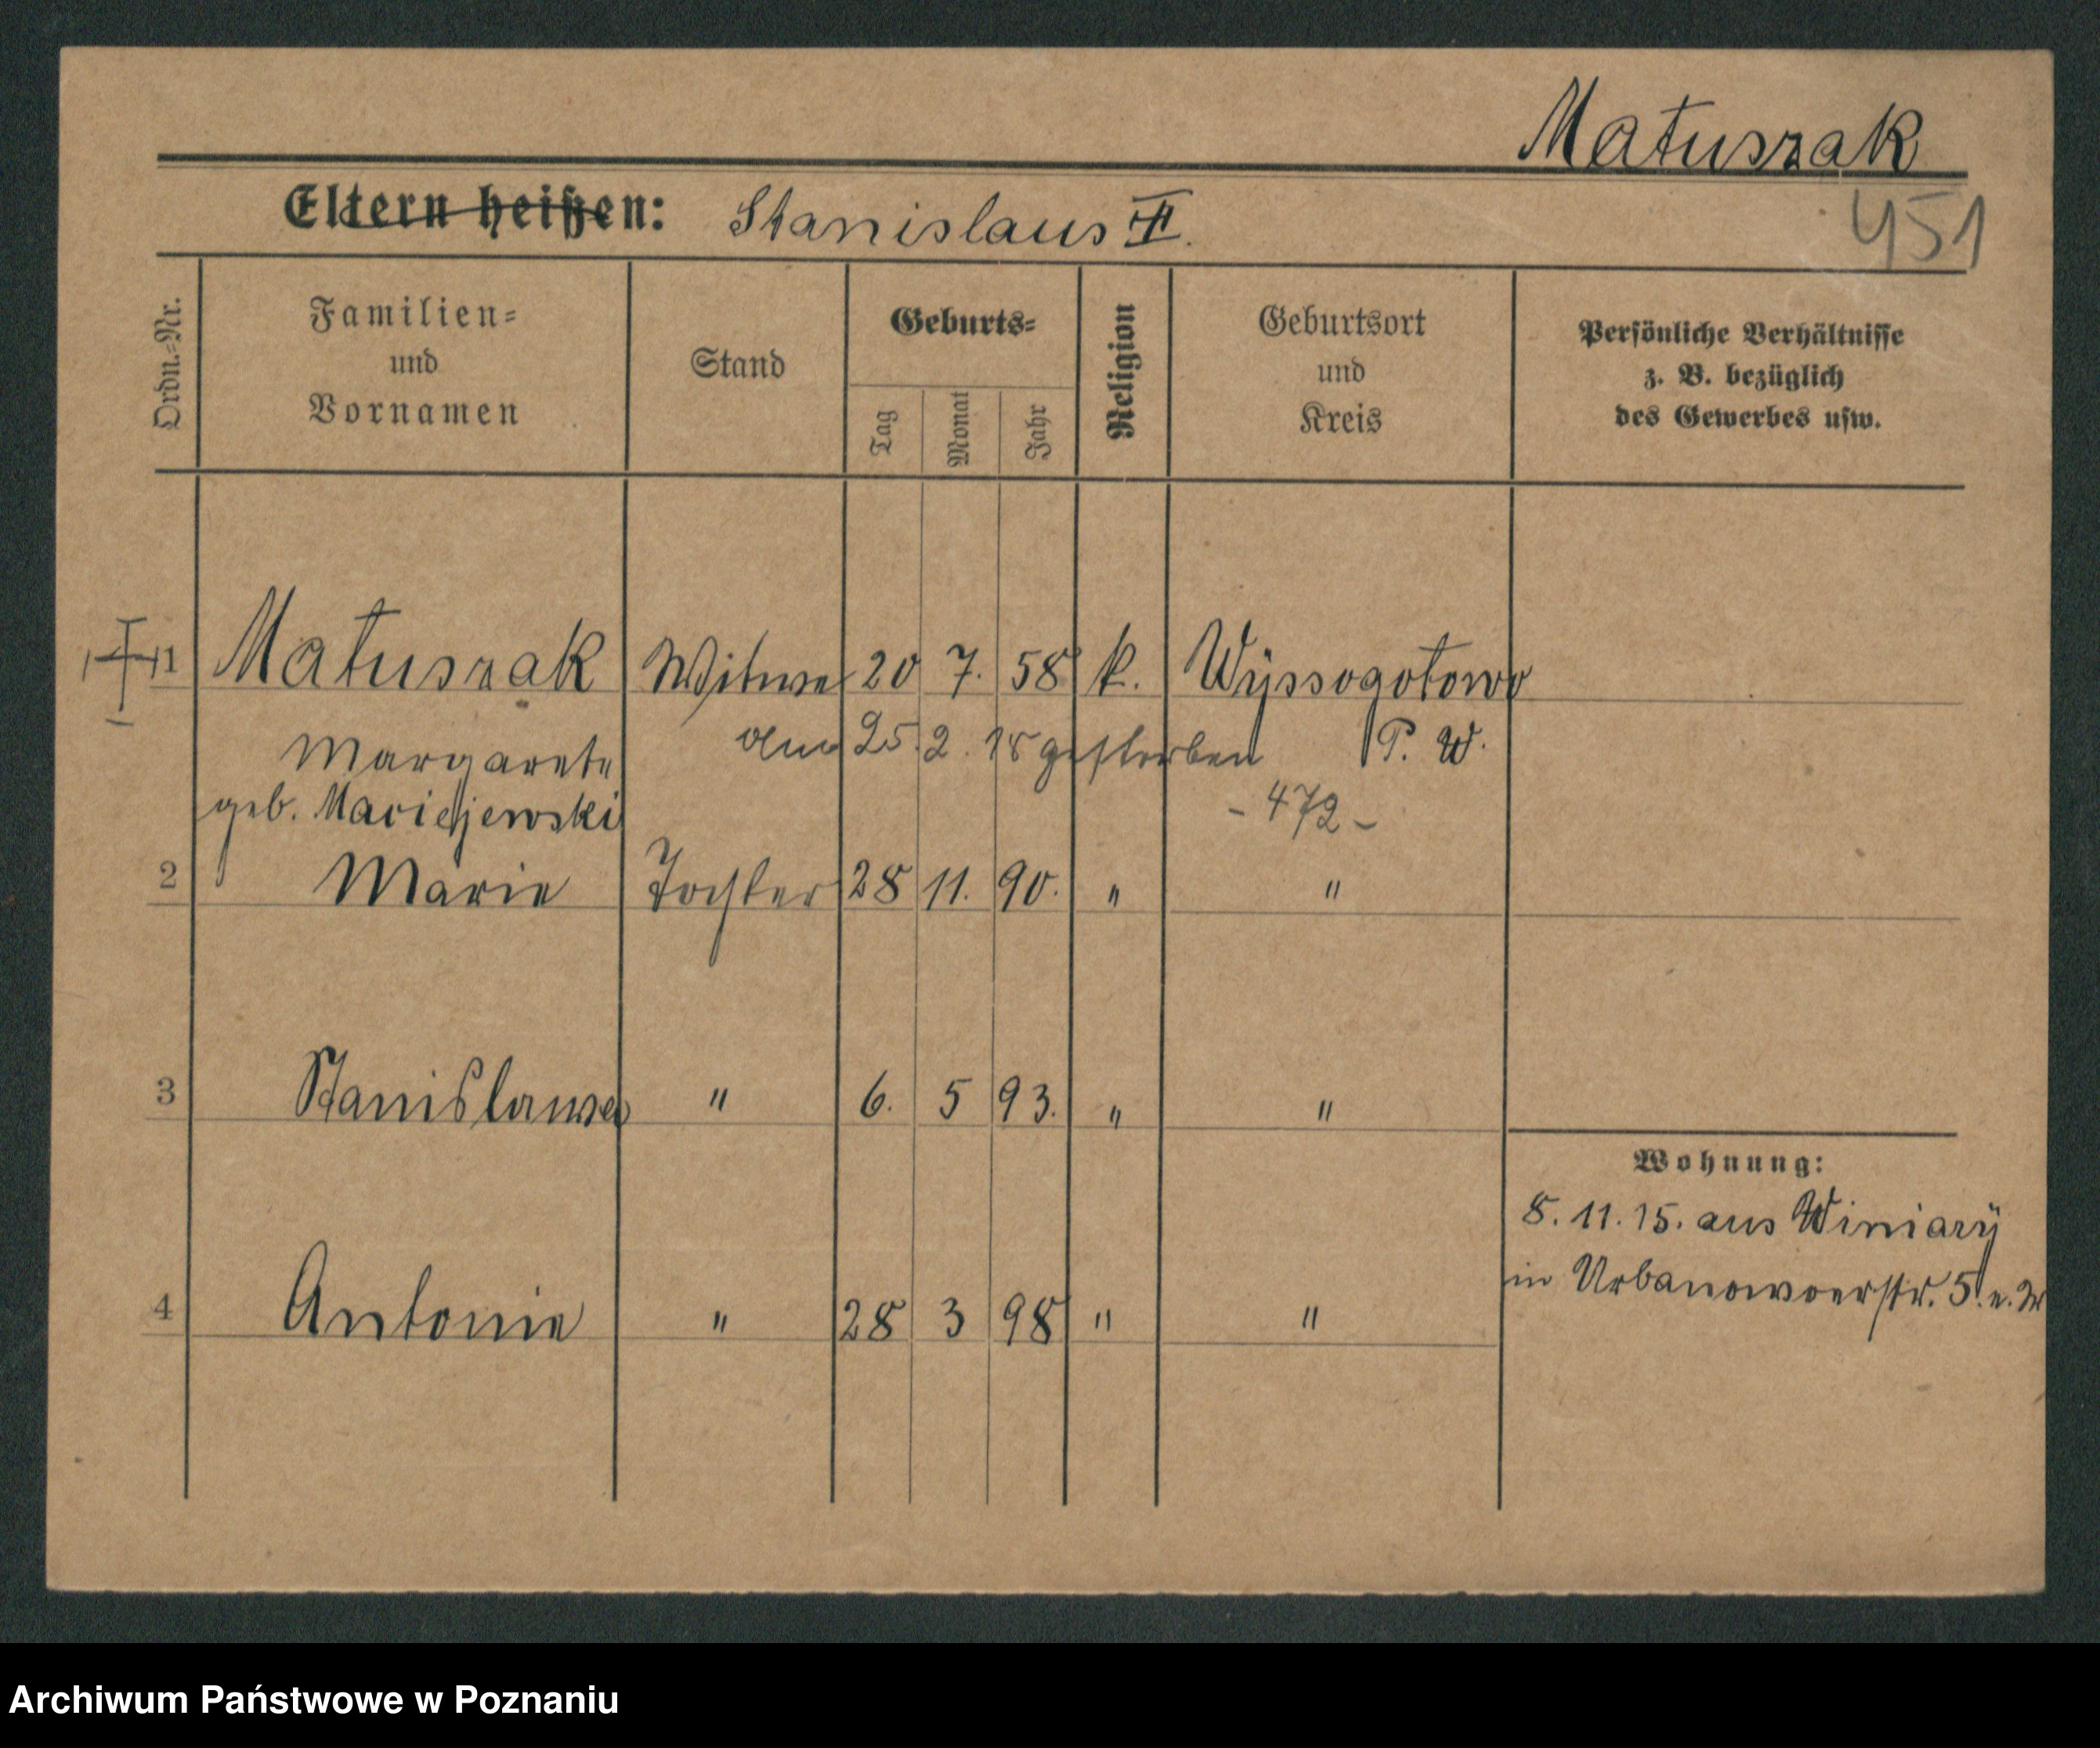 Matuszak
Eltern heißen: Stanislaus II.
451
Ordn.-Nr.
Familien-
und
Vornamen
Stand
Geburts-
Tag
Monat
Jahr
Religion
Geburtsort
und
Kreis
Persönliche Verhältnisse
z. B. bezüglich
des Gewerbes usw.
1 Matuszak Witwe 20 7. 58 k. Wÿssogotowo
Margarete am 25. 2. 18 gestorben P. W.
geb. Maciejewski - 472 -
2 Marie Tochter 28 11. 90. " "
3 Stanislawa " 6. 5 93. " "
Wohnung:
8. 11. 15. aus Winiarÿ
in Urbanowoerstr. 5
4 Antonie " 28 3 98 " "
Archiwum Państwowe w Poznaniu